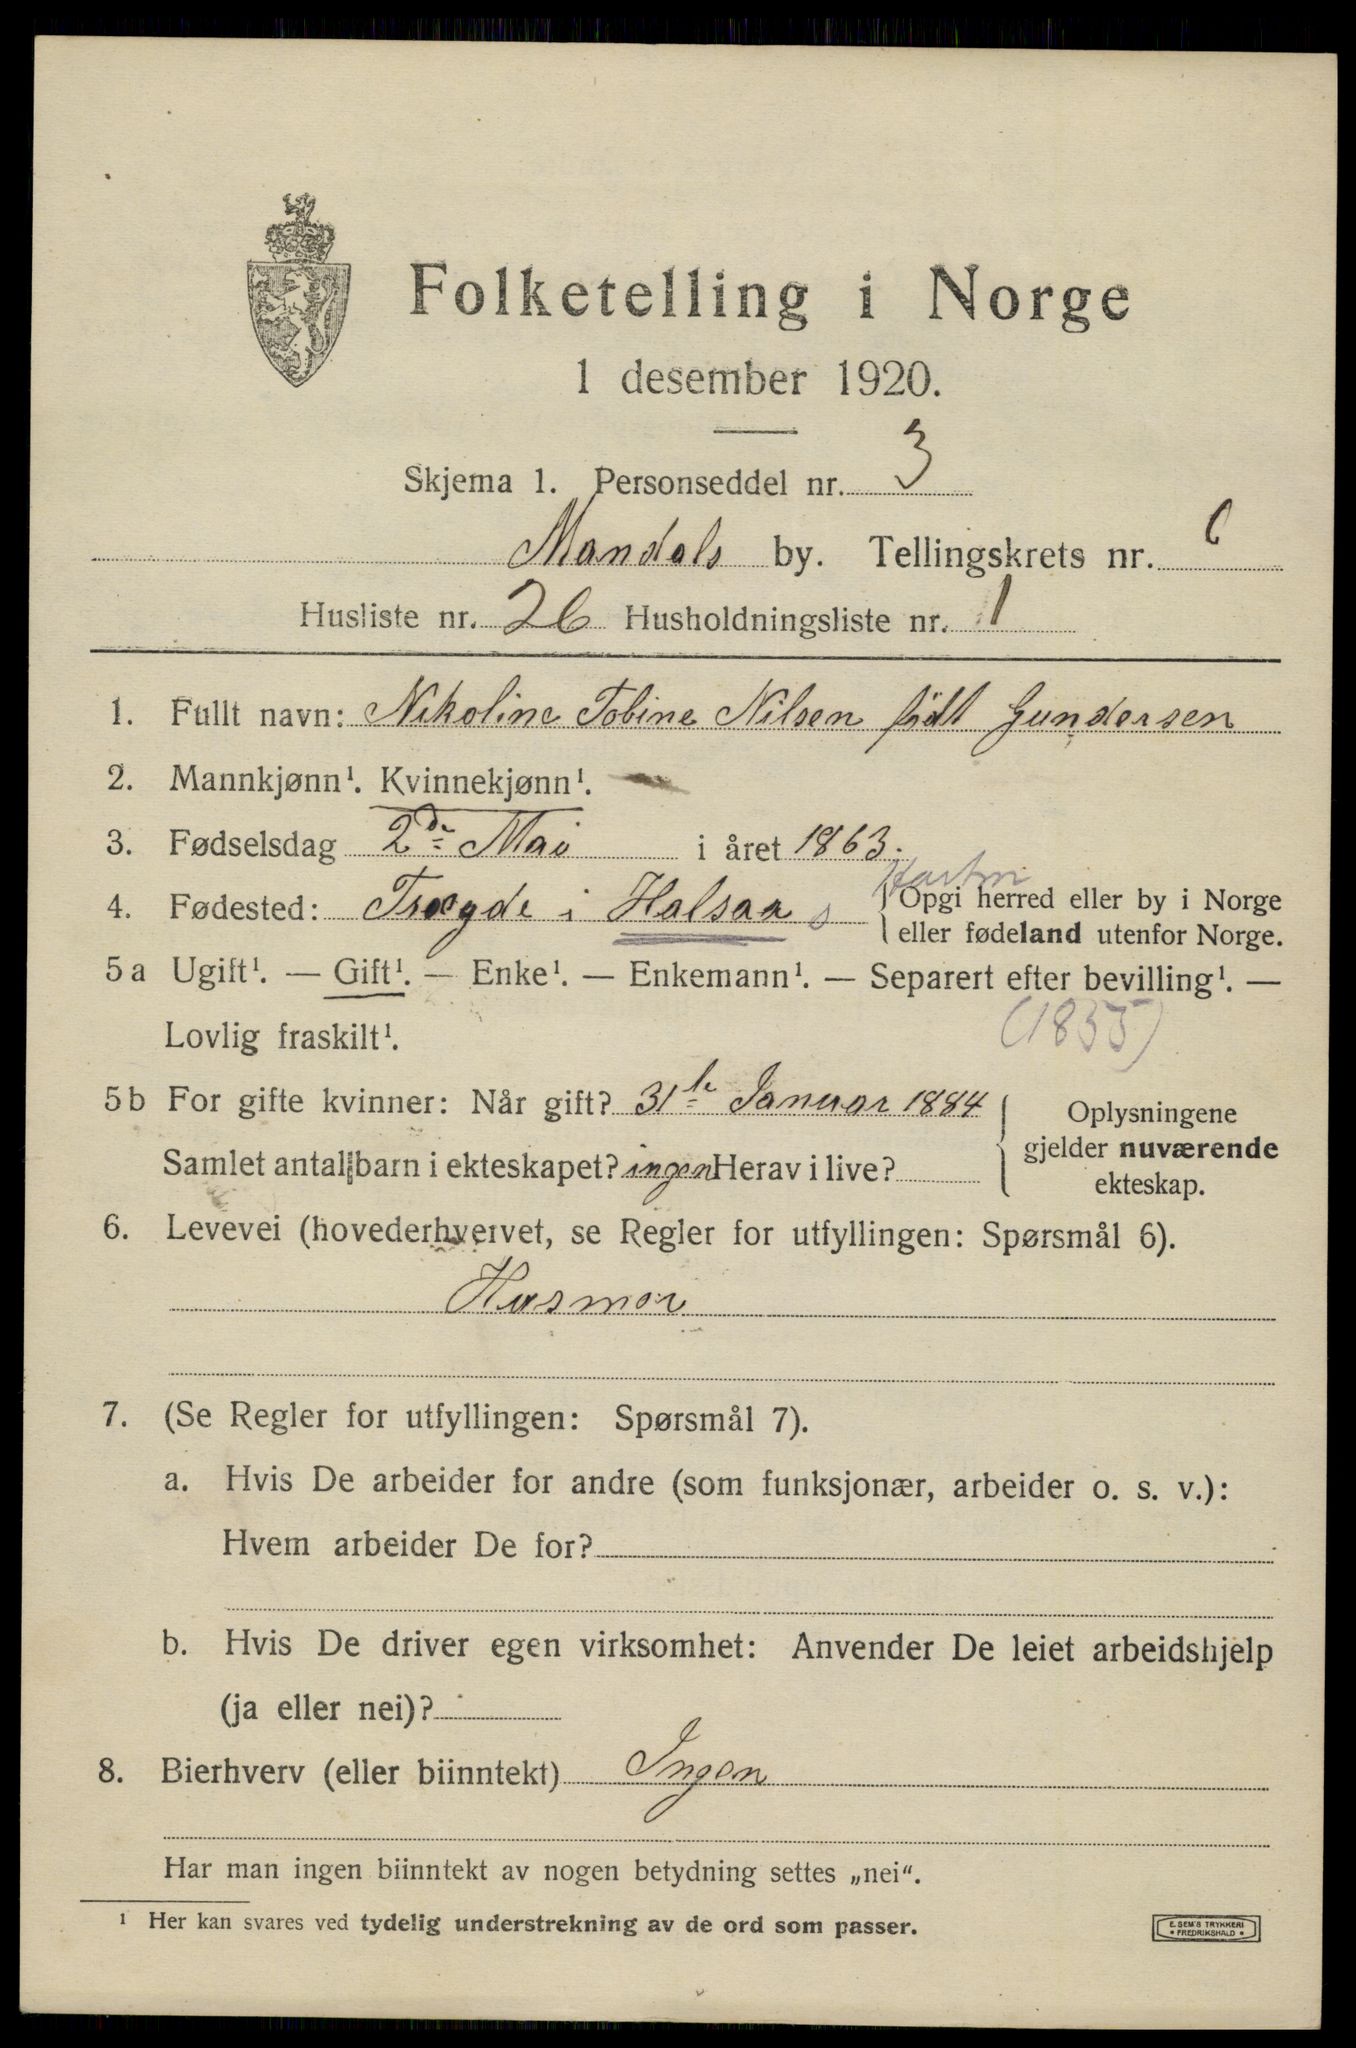 Folketelling i Norge
1 desember 1920.
Skjema 1. Personseddel nr. 3
Mandals by. Tellingskrets nr. 6
Husliste nr. 26 Husholdningsliste nr. 1
1. Fullt navn: Nikoline Tobine Nilsen født Gundersen
2. Mannkjønn¹. Kvinnekjønn¹.
3. Fødselsdag 2de Mai i året 1863.
4. Fødested: Trægde i Halsaa s { Opgi herred eller by i Norge
eller fødeland utenfor Norge.
5a Ugift¹. — Gift¹. — Enke¹. — Enkemann¹. — Separert efter bevilling¹. —
(1855)
Lovlig fraskilt¹.
5b For gifte kvinner: Når gift? 31te Januar 1884 { Oplysningene
gjelder nuværende
ekteskap.
Samlet antal barn i ekteskapet? ingen Herav i live?
6. Levevei (hovederhvervet, se Regler for utfyllingen: Spørsmål 6).
Husmor
7. (Se Regler for utfyllingen: Spørsmål 7).
a. Hvis De arbeider for andre (som funksjonær, arbeider o. s. v.):
Hvem arbeider De for?
b. Hvis De driver egen virksomhet: Anvender De leiet arbeidshjelp
(ja eller nei)?
8. Bierhverv (eller biinntekt) Ingen
Har man ingen biinntekt av nogen betydning settes „nei“.
¹ Her kan svares ved tydelig understrekning av de ord som passer.
E. SEM'S TRYKKERI
* FREDRIKSHALD *